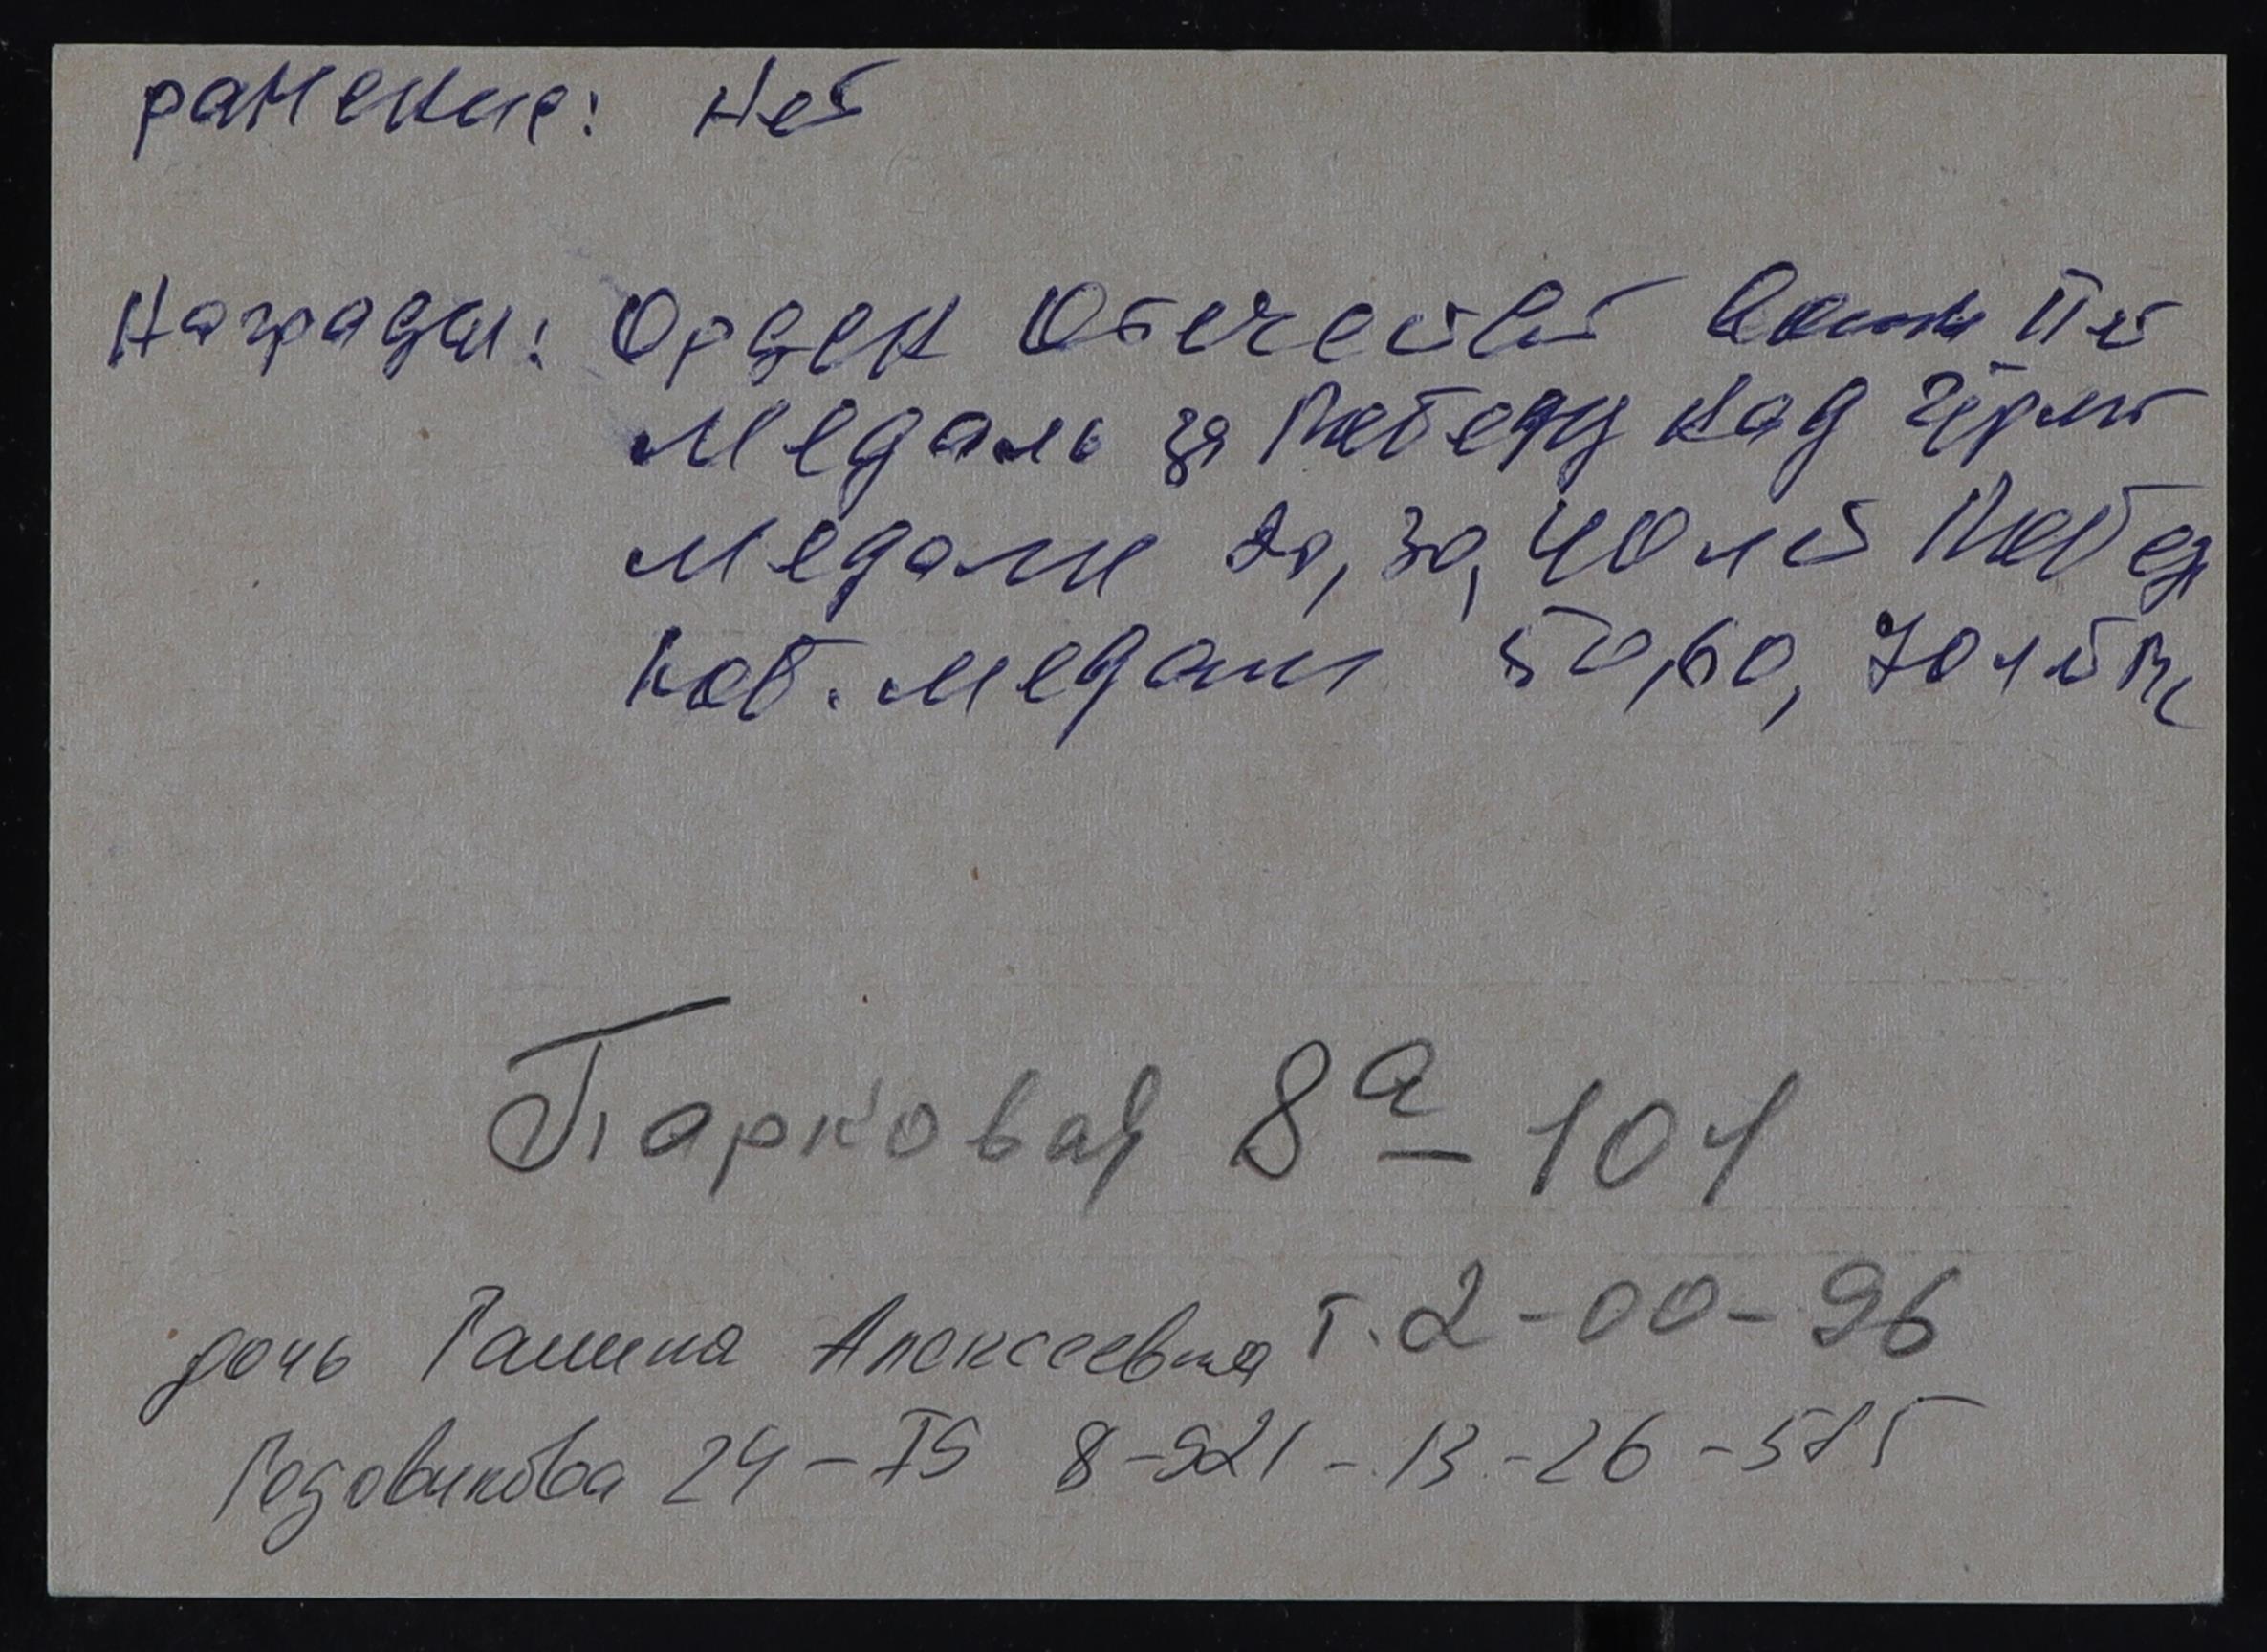 ранение: Нет
Награды: Орден Отечеств Войны II ст
Медаль за Победу над Герм
медали 20, 30, 40 лет Побед
юб. медали 50, 60, 70 лет
Парковая 8а - 101
т. 2-00-96
дочь Галина Алексеевна
Годовикова 24-75 8-921-13-26-515